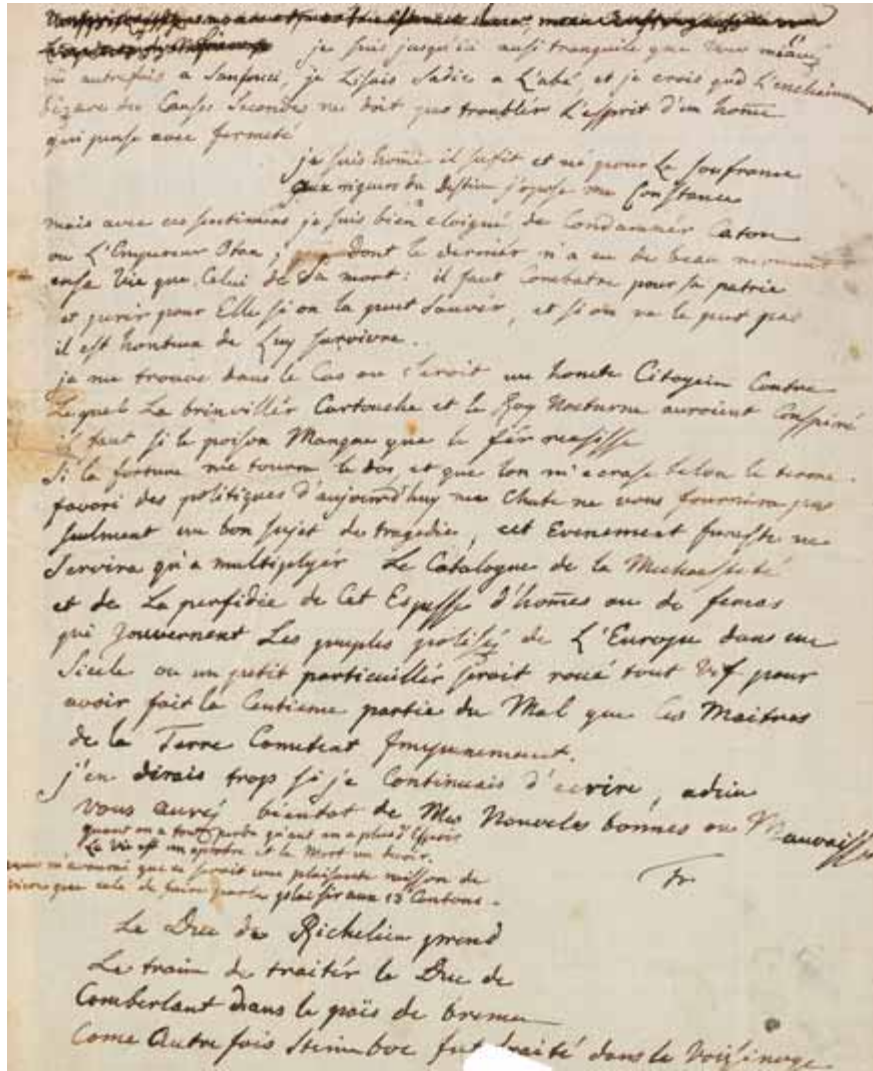 je suis jusqu'ici aussi tranquile que vous m'avéz
vû autrefois a Sansouci, je Lisais Sadic a L'abé, et je crois que L'enchainem
bizare des Causes Secondes ne doit pas troublér L'esprit d'un home
qui pense avec fermeté
je suis home il sufit et né pour La soufrance
aux rigeurs du destin j'opose ma Constance
mais avec ces sentimens je suis bien eloigné de Condamnér Caton
ou L'Empereur Oton, dont le derniér n'a eu de beau moment
en sa Vie que Celui de Sa mort: il faut Combatre pour sa patrie
et perir pour Elle si on la peut Sauvér, et si on ne le peut pas
il est honteux de Luy survivre.
je me trouve dans le Cas ou Seroit un honete Citoyein Contre
Lequel La brinvilliér Cartouche et le Roy Nocturne auroient Conspiré
il faut si le poison Manque que le fér reusisse
Si la fortune me tourne le dos, et que lon m'ecrase selon le terme
favori des politiques d'aujourd'huy ma Chute ne vous fournira pas
seulment un bon sujet de tragedie, cet Evenement funeste ne
Servira qu'a multiplyér Le Catalogue de la Mechansseté
et de La perfidie de Cet Espesse d'homes ou de femes
qui gouvernent Les peuples polisés de L'Europe dans un
Siecle ou un petit particuilliér seroit roué tout vif pour
avoir fait la Centieme partie du Mal que Ces Maitres
de la Terre Cometent Impunement.
j'en dirais trop si je Continuais d'ecrire, adieu
vous auréz bientot de Mes Nouveles bonnes ou Mauvaisses
quant on a tout perdu quant on a plus d'Espoir
La vie est un oprobre et la Mort un devoir.
que ce seroit une plaisante raisson de
vivre que cele de faire plaisir aux 13 Cantons.
Fr
Le Duc de Richelieu prend
Le train de traitér le Duc de
Comberlant dians le païs de breme
Come Autre fois Steinboc fut traité dans le Voissinage